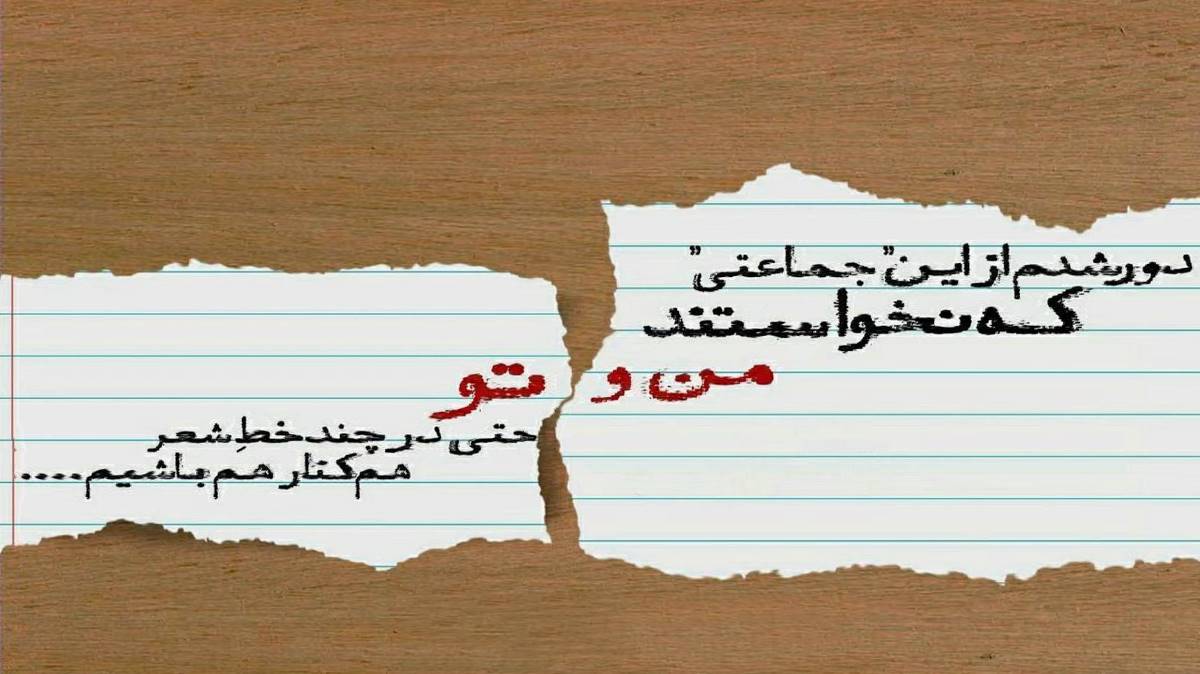 دور شدم از این "جماعتی"
که نخواستند
من و تو
حتی در چند خطِ شعر
هم کنار هم باشیم....